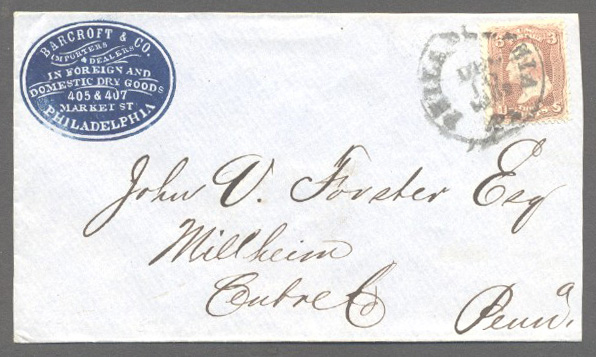 BARCROFT & CO.
IMPORTERS
& DEALERS
IN FOREIGN AND
DOMESTIC DRY GOODS
405 & 407
MARKET ST
PHILADELPHIA
PHILADELPHIA
3 3
John V. Forster Esq
Millheim
Centre Co
Penna.